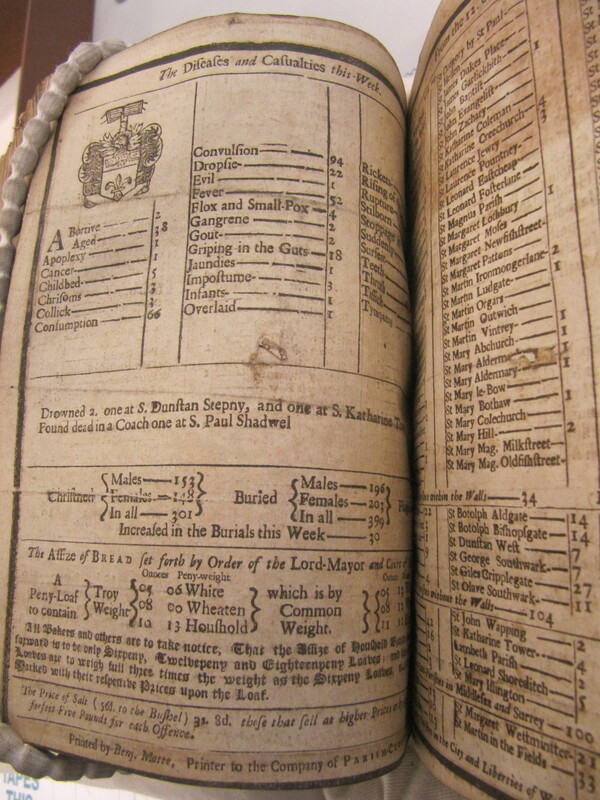 The Diseases and Casualties this Week.
ABortive 2
Aged 38
Apoplexy 1
Cancer 1
Childbed 5
Chrisoms 3
Collick
Consumption 66
Convulsion 94
Dropsie 22
Evil 1
Fever 52
Flox and Small-Pox 4
Gangrene 2
Gout 2
Griping in the Guts 18
Jaundies 1
Impostume 3
Infants 1
Overlaid 1
Rickets
Rising
Rupture
Stilborn
Stoppage
Suddenly
Surfeit
Teeth
Thrush
Tissick
Tympany
Drowned 2. one at S. Dunstan Stepny, and one at S. Katharine
Found dead in a Coach one at S. Paul Shadwel
Christned Males 153 Females 148 In all 301
Buried Males 196 Females 203 In all 399
Increased in the Burials this Week 30
The Assize of BREAD set forth by Order of the Lord-Mayor and
Ounces Peny-weight
A Peny-Loaf to contain Troy Weight 05 06 White 08 00 Wheaten 10 13 Houshold which is by Common Weight.
All Bakers and others are to take notice, That the Assize of Houshold
forward is to be only Sixpeny, Twelvepeny and Eighteenpeny Loaves; and
Loaves are to weigh full three times the weight as the Sixpeny Loaves,
Marked with their respective Prizes upon the Loaf.
The Price of Salt (56l. to the Bushel) 3s. 8d. those that sell at higher Prices
forfeit Five Pounds for each Offence.
Printed by Benj. Motte, Printer to the Company of
from the 12.
by St Paul
St James Dukes Place
St James Garlickhith 1
St John Baptist
St John Evangelist
St John Zachary
St Katharine Coleman 4
St Katharine Creechurch 3
St Laurence Jewry
St Laurence Pountney
St Leonard Eastcheap
St Leonard Fosterlane
St Magnus Parish 1
St Margaret Lothbury
St Margaret Moses
St Margaret Newfishstreet
St Margaret Pattons
St Martin Ironmongerlane 2
St Martin Ludgate 1
St Martin Orgars
St Martin Outwich
St Martin Vintrey 1
St Mary Abchurch 1
St Mary Alderma
St Mary Aldermary 1
St Mary le-Bow
St Mary Bothaw 1
St Mary Colechurch
St Mary Hill 2
St Mary Mag. Milkstreet
St Mary Mag. Oldfishstreet
within the Walls 34
St Botolph Aldgate 14
St Botolph Bishopsgate 14
St Dunstan West 7
St George Southwark 7
St Giles Cripplegate 27
St Olave Southwark 11
without the Walls 104
St John Wapping
St Katharine Tower 4
Lambeth Parish
St Leonard Shoreditch
St Mary Islington
in Middlesex and Surrey 100
St Margaret Westminster 21
St Martin in the Fields 33
in the City and Liberties of